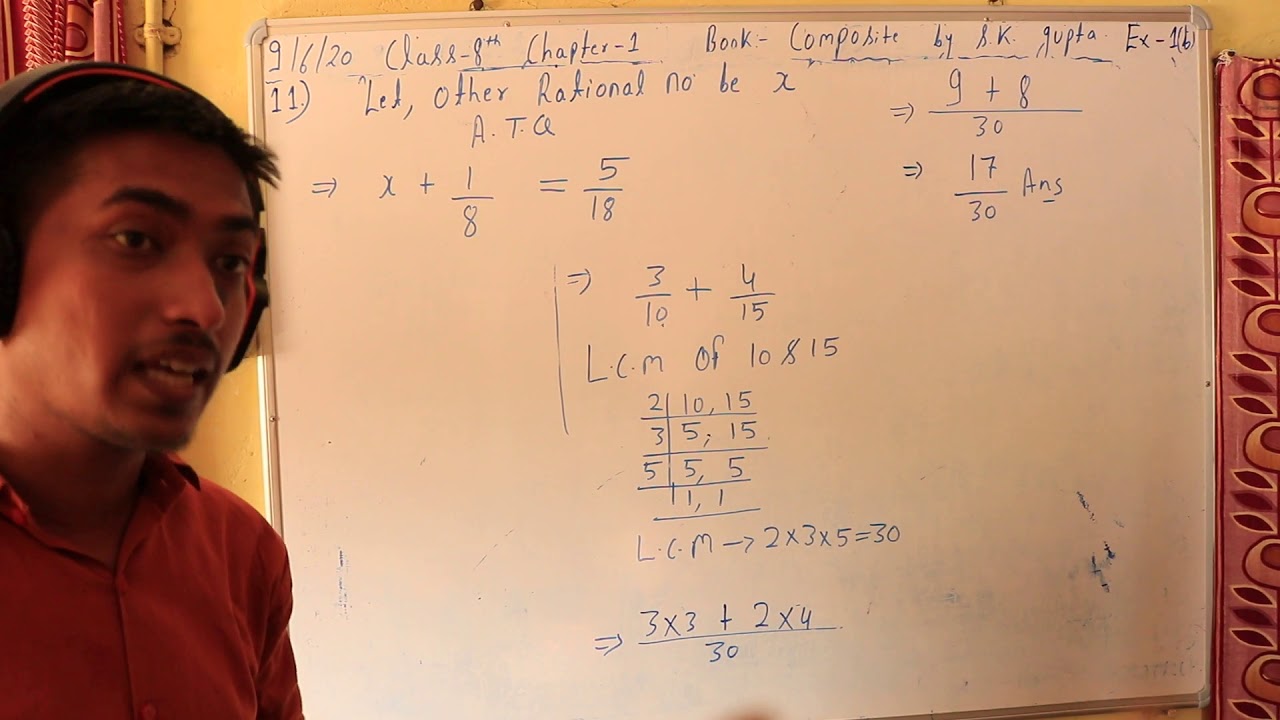 9/6/20 Class-8th Chapter-1 Book:- Composite by S.K. gupta. Ex-1(b)
11.) Let, Other Rational no be x
A.T.Q
=> x + 1/8 = 5/18
=> 3/10 + 4/15
L.C.M of 10 & 15
2 | 10, 15
3 | 5, 15
5 | 5, 5
| 1, 1
L.C.M → 2×3×5=30
=> 3×3 + 2×4 / 30
=> 9 + 8 / 30
=> 17/30 Ans